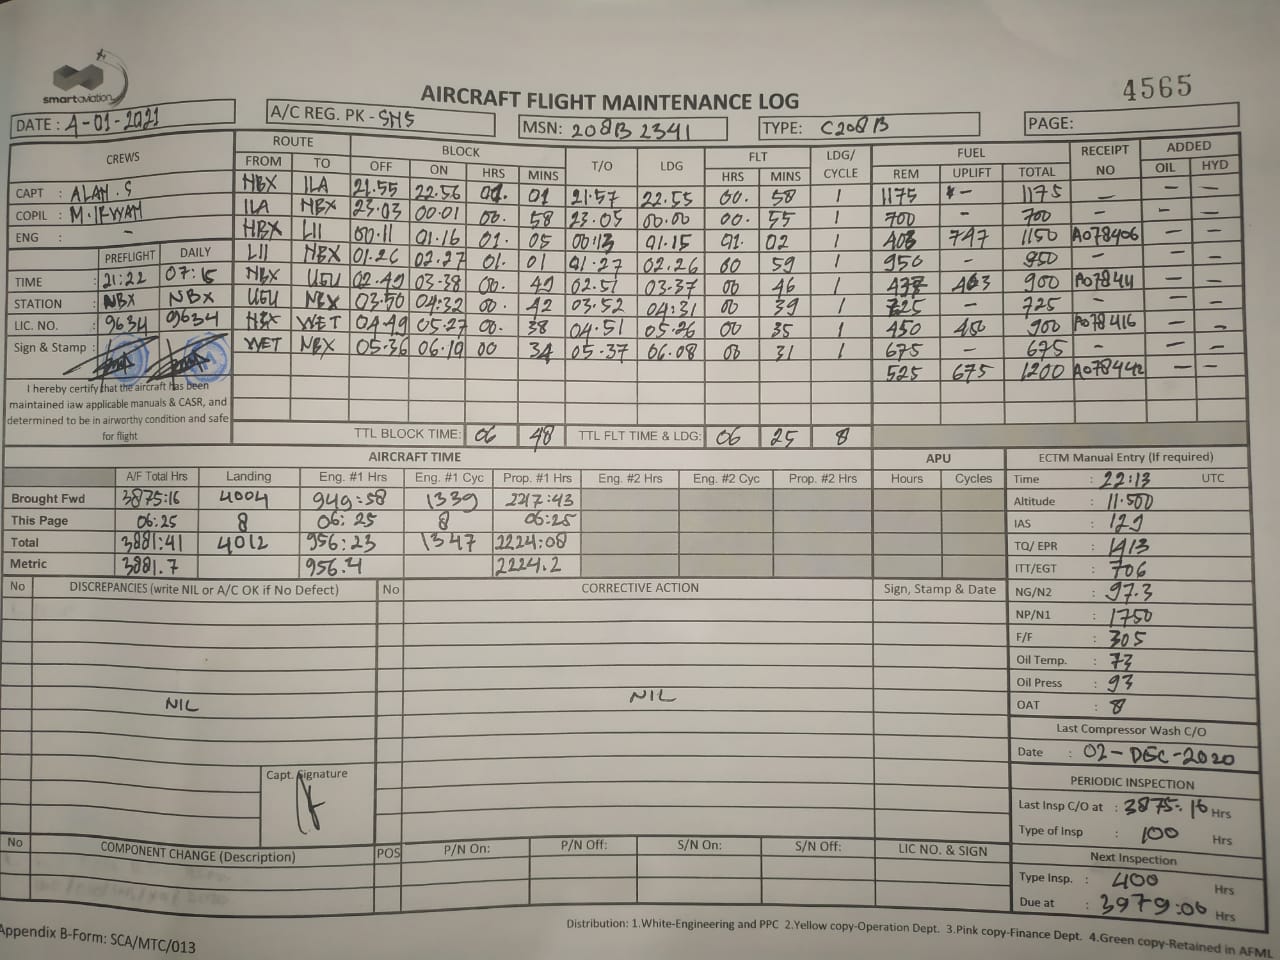 smartaviation
AIRCRAFT FLIGHT MAINTENANCE LOG
4565
DATE : 4-01-2021
A/C REG. PK - SNS
MSN: 208B 2341
TYPE: C208B
PAGE:
CREWS ROUTE BLOCK T/O LDG FLT LDG/ CYCLE FUEL RECEIPT NO ADDED
FROM TO OFF ON HRS MINS HRS MINS REM UPLIFT TOTAL OIL HYD
CAPT : ALAN.S NBX ILA 21.55 22.56 01. 01 21.57 22.55 00. 58 1 1175 - 1175 — — —
COPIL : ILA NBX 23.03 00.01 00. 58 23.05 00.00 00. 55 1 700 - 700 — - —
ENG : - NBX LII 00.11 01.16 01. 05 00.13 01.15 01. 02 1 403 747 1150 A078406 — —
LII NBX 01.26 02.27 01. 01 01.27 02.26 00 59 1 950 - 950 — — —
PREFLIGHT DAILY
TIME : 21:22 07:15 NBX UGU 02.49 03.38 00. 49 02.51 03.37 00 46 1 437 463 900 — —
STATION : NBX NBX UGU NBX 03.50 04.32 00. 42 03.52 04.31 00 39 1 725 - 725 - — —
LIC. NO. : 9634 9634 NBX WET 04.49 05.27 00. 38 04.51 05.26 00 35 1 450 450 900 A078416 — —
Sign & Stamp : WET NBX 05.36 06.10 00 34 05.37 06.08 00 31 1 675 - 675 - — —
525 675 1200 A078442 — —
I hereby certify that the aircraft has been
maintained iaw applicable manuals & CASR, and
determined to be in airworthy condition and safe
for flight
TTL BLOCK TIME: 06 48 TTL FLT TIME & LDG: 06 25 8
AIRCRAFT TIME APU ECTM Manual Entry (If required)
A/F Total Hrs Landing Eng. #1 Hrs Eng. #1 Cyc Prop. #1 Hrs Eng. #2 Hrs Eng. #2 Cyc Prop. #2 Hrs Hours Cycles
Brought Fwd 3875:16 4004 949:58 1339 2217:43
This Page 06:25 8 06:25 8 06:25
Total 3881:41 4012 956:23 1347 2224:08
Metric 3881.7 956.4 2224.2
Time : 22:13 UTC
Altitude : 11.500
IAS : 129
TQ/ EPR : 1413
ITT/EGT : 706
NG/N2 : 97.3
NP/N1 : 1750
F/F : 305
Oil Temp. : 73
Oil Press : 93
OAT : 8
No DISCREPANCIES (write NIL or A/C OK if No Defect) No CORRECTIVE ACTION Sign, Stamp & Date
NIL NIL
Capt. Signature
Last Compressor Wash C/O
Date : 02-DEC-2020
PERIODIC INSPECTION
Last Insp C/O at : 3875:16 Hrs
Type of Insp : 100 Hrs
Next Inspection
Type Insp. : 400 Hrs
Due at : 3979:06 Hrs
No COMPONENT CHANGE (Description) POS P/N On: P/N Off: S/N On: S/N Off: LIC NO. & SIGN
Distribution: 1.White-Engineering and PPC 2.Yellow copy-Operation Dept. 3.Pink copy-Finance Dept. 4.Green copy-Retained in AFML
Appendix B-Form: SCA/MTC/013